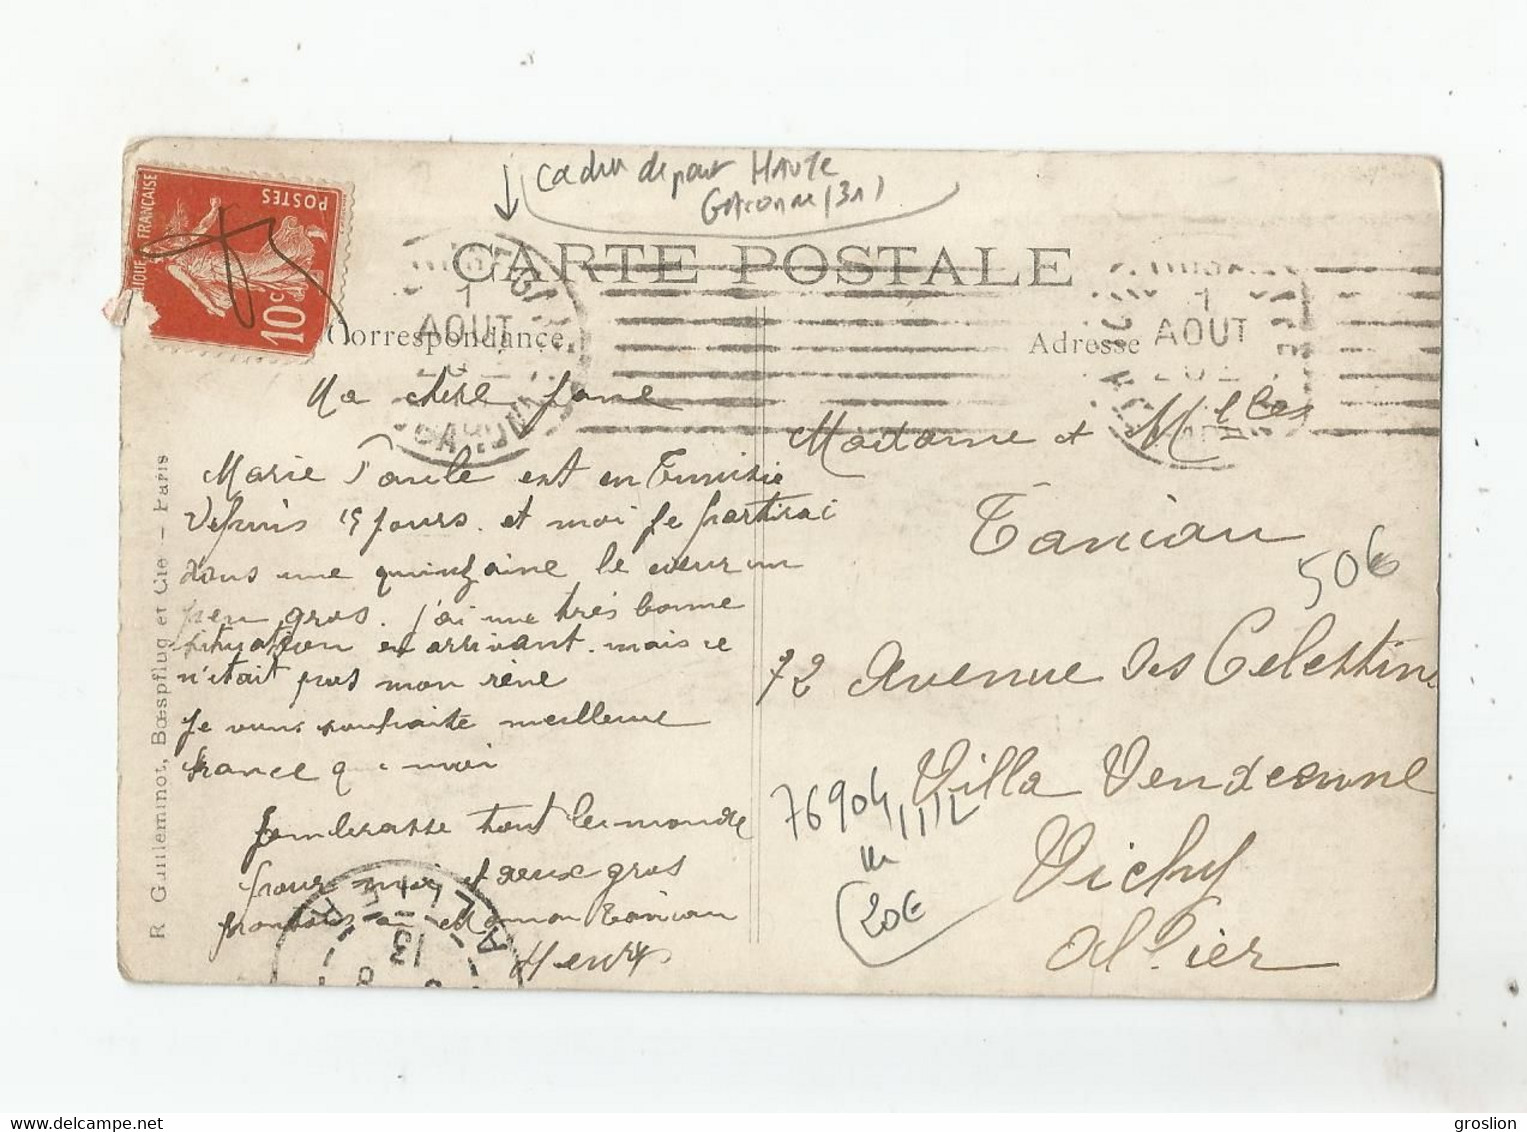 cadre depart HAUTE
Garonne (31)
CARTE POSTALE
POSTES
FRANÇAISE
10c
Correspondance
Adresse
1
AOUT
1
AOUT
Ma chere Jane
Marie Paule est en Tunisie
Depuis 15 jours. et moi je partirai
dans une quinzaine le coeur un
peu gros. j'ai une très bonne
situation en arrivant. mais ce
n'était pas mon rêve
Je vous souhaite meilleure
chance que moi
J'embrasse tout le monde
pour moi et deux gros
Maman Taniau
Henry
Madame et Mlles
Taniau
72 Avenue des Celestins
Villa Vendeenne
Vichy
Allier
506
76904
20€
ALLIER
13
R. Guilleminot, Bœspflug et Cie — Paris
groslion